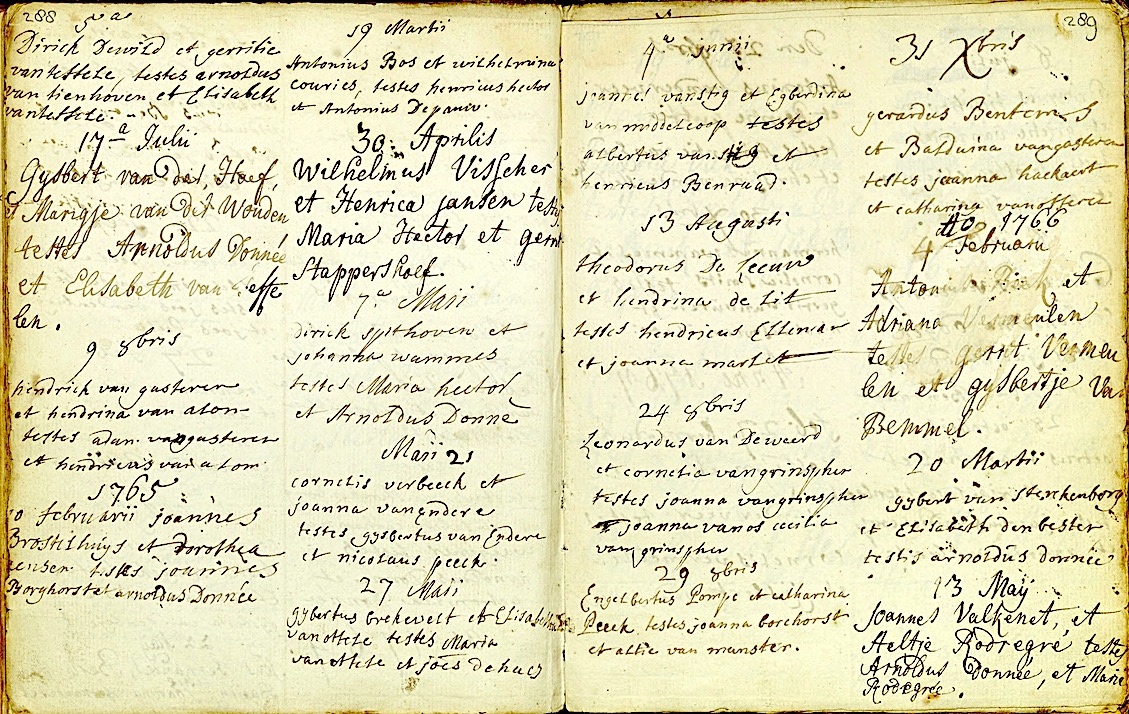 288
5a
Dirick Dewild et gerritie
van teffele, testes arnoldus
van tienhoven et Elisabeth
vanteffele.
17a Julii
Gysbert van der Hoef,
et Marigje van der Wouden
testes Arnoldus Donnée
et Elisabeth van
len.
9 8bris
hendrick van gasteren
et hendrina van aton
testes adan. vangasteren
et hendricus van atom.
1765
februarii joannes
Brosithuys et Dorothea
jensen testes joannes
Borghorst et arnoldus Donnée
19 Martii
Antonius Bos et wilhelmina
couries, testes henricus hector
et Antonius Depauw.
30 Aprilis
Wilhelmus Visscher
et Henrica jansen testes
Maria Hector et gerrit
Stappershoef.
7a Maii
Dirick spithoven et
johanna wammes
testes Maria hector
et Arnoldus Donné
Maii 21
cornelis verbeeck et
joanna van Endere
testes gysbertus van Endere
et nicolaus peeck.
27 Maii
gybertus brekevelt et Elisabeth
vanottele testes Maria
vanottele et joes dehaes
289
4a junii
vanstig et Egberdina
van middelcoop testes
albertus vanstig et
henricus Benraad.
13 Augusti
theodorus De Leeuw
et hendrina de Lit
testes hendricus Elleman
et joanna marlet
24 8bris
Leonardus van Deweerd
et cornelia vangrinspher
testes joanna vangrinspher
joanna vanos cecilia
van grinspher
29 8bris
Engelbertus Pompe et catharina
Peeck testes joanna borchorst
et altie van munster.
31 Xbris
gerardus Bentems
et Balduina vangasteren
testes joanna hackaert
et catharina vanofferen
Ao 1766
4 Februarii
Antonius Rick et
Adriana Vermeulen
testes gerrit Vermeu
len et gysbertje Van
Bemmel.
20 Martii
gybert van sterkenborg
et Elisabeth den bester
testis arnoldus donnée
13 Maij
Joannes Valkenet, et
Aeltje Rodregré testes
Arnoldus Donnée, et Maria
Rodegrée.